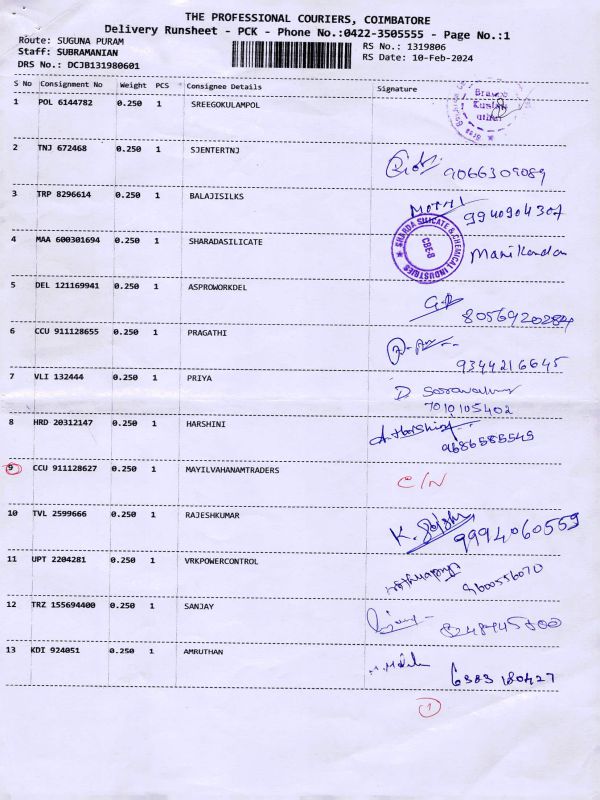 THE PROFESSIONAL COURIERS, COIMBATORE
Delivery Runsheet - PCK - Phone No.:0422-3505555 - Page No.:1
Route: SUGUNA PURAM
RS No.: 1319806
Staff: SUBRAMANIAN
RS Date: 10-Feb-2024
DRS No.: DCJB131980601
S No Consignment No Weight PCS Consignee Details Signature
1 POL 6144782 0.250 1 SREEGOKULAMPOL
2 TNJ 672468 0.250 1 SJENTERTNJ 9066309089
3 TRP 8296614 0.250 1 BALAJISILKS 9940904307
4 MAA 600301694 0.250 1 SHARADASILICATE Manikandan
SHARDA SILICATE & CHEMICAL INDUSTRIES
CBE-8
5 DEL 121169941 0.250 1 ASPROWORKDEL 8056920284
6 CCU 911128655 0.250 1 PRAGATHI 9344216645
7 VLI 132444 0.250 1 PRIYA
7010105402
8 HRD 20312147 0.250 1 HARSHINI A.Harshini 9686585545
9 CCU 911128627 0.250 1 MAYILVAHANAMTRADERS C/N
10 TVL 2599666 0.250 1 RAJESHKUMAR 9994060559
11 UPT 2204281 0.250 1 VRKPOWERCONTROL 9600556070
12 TRZ 155694400 0.250 1 SANJAY 8248745800
13 KDI 924051 0.250 1 AMRUTHAN 6383 180427
1